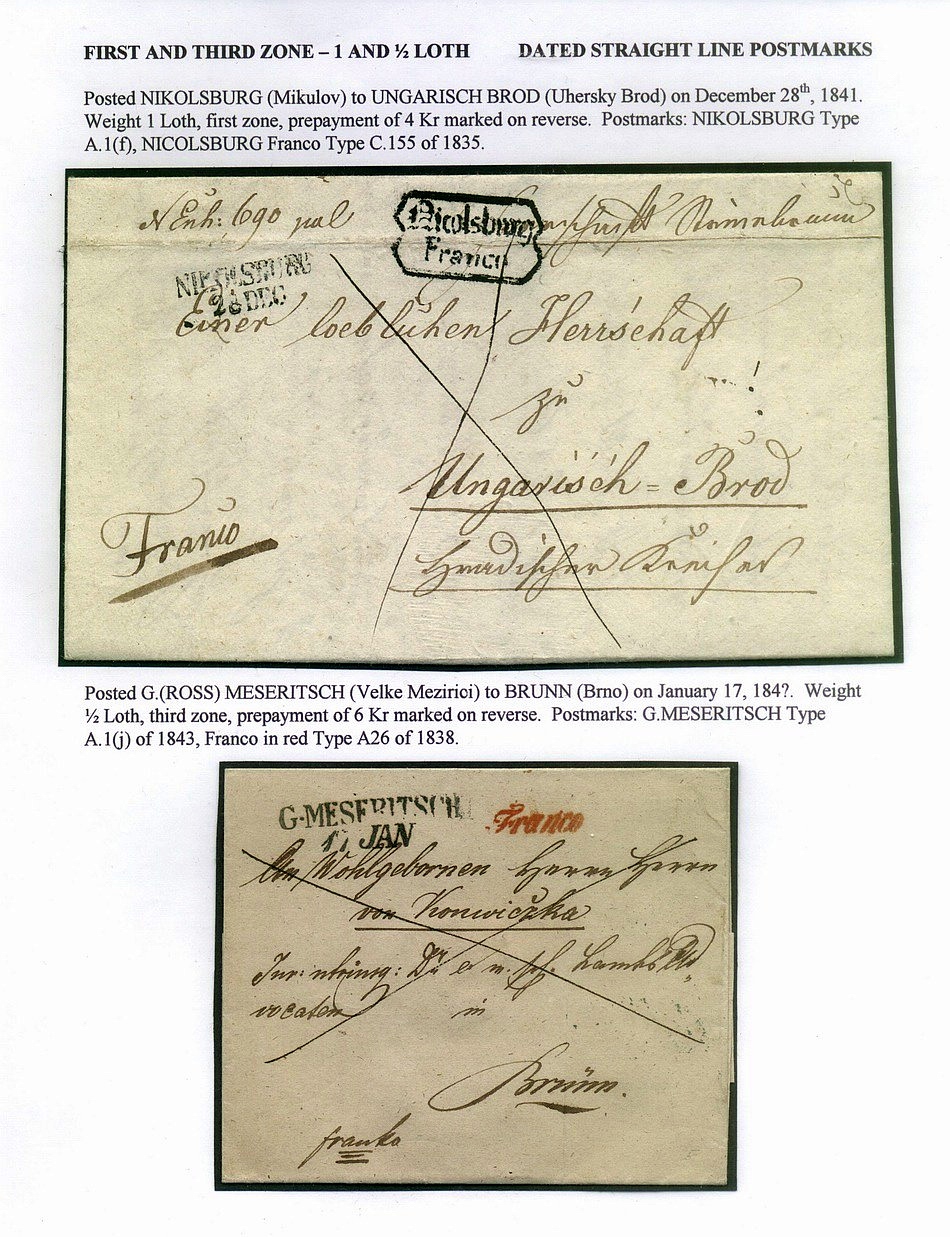 FIRST AND THIRD ZONE – 1 AND ½ LOTH DATED STRAIGHT LINE POSTMARKS
Posted NIKOLSBURG (Mikulov) to UNGARISCH BROD (Uhersky Brod) on December 28th, 1841.
Weight 1 Loth, first zone, prepayment of 4 Kr marked on reverse. Postmarks: NIKOLSBURG Type
A.1(f), NICOLSBURG Franco Type C.155 of 1835.
NEnh: 690
Nicolsburg
Franco
NIKOLSBURG
28 DEC
Einer loeblichen Herrschaft
zu
Ungarisch = Brod
Franco
Hradischer Kreises
Posted G.(ROSS) MESERITSCH (Velke Mezirici) to BRUNN (Brno) on January 17, 184?. Weight
½ Loth, third zone, prepayment of 6 Kr marked on reverse. Postmarks: G.MESERITSCH Type
A.1(j) of 1843, Franco in red Type A26 of 1838.
G-MESERITSCH Franco
17 JAN
Wohlgebornen Herrn Herrn
von Konwiczka
in
Brünn.
franko